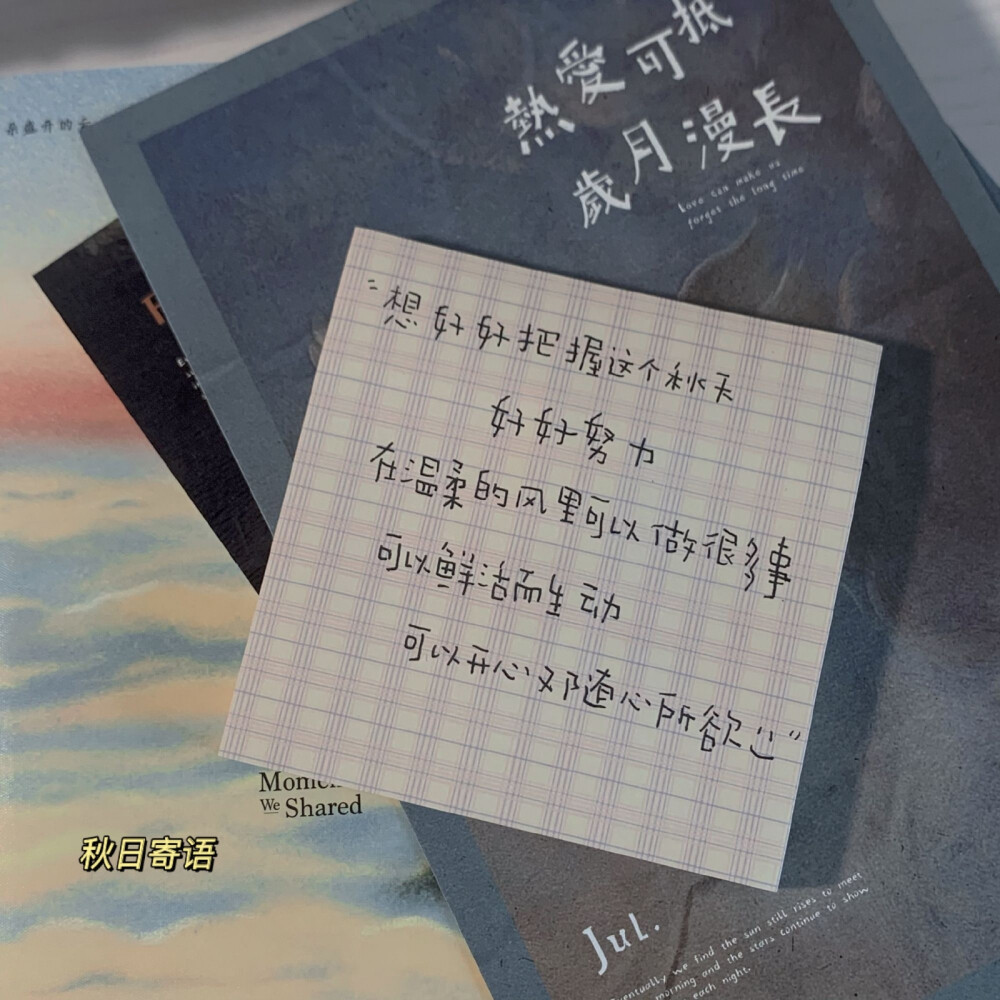 朵盛开的
熱愛可抵
歲月漫長
Love can make us
forget the long time
“想好好把握这个秋天
好好努力
在温柔的风里可以做很多事
可以鲜活而生动
可以开心又随心所欲”
We Shared
秋日寄语
Jul.
Eventually we find the sun still rises to meet
morning and the stars continue to show
each night.